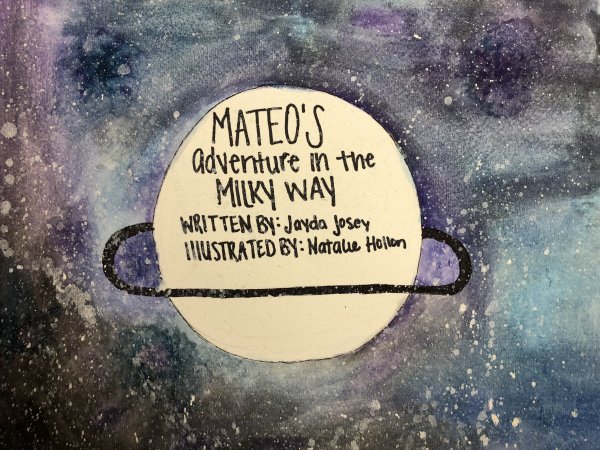 MATEO'S
adventure in the
MILKY WAY
WRITTEN BY: Jayda Josey
ILLUSTRATED BY: Natalie Hollon